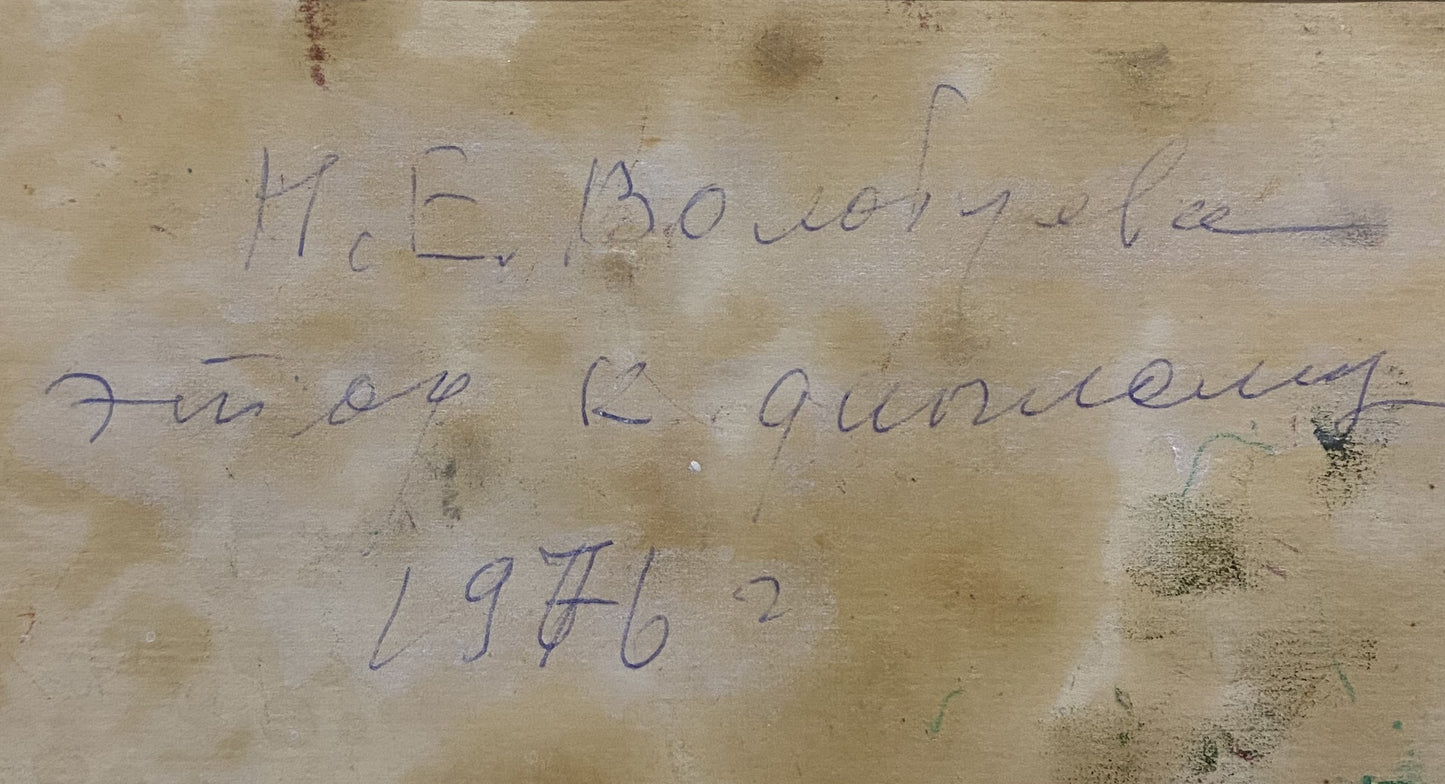 Н. Е. Волобуева
этюд к диплому
1976 г